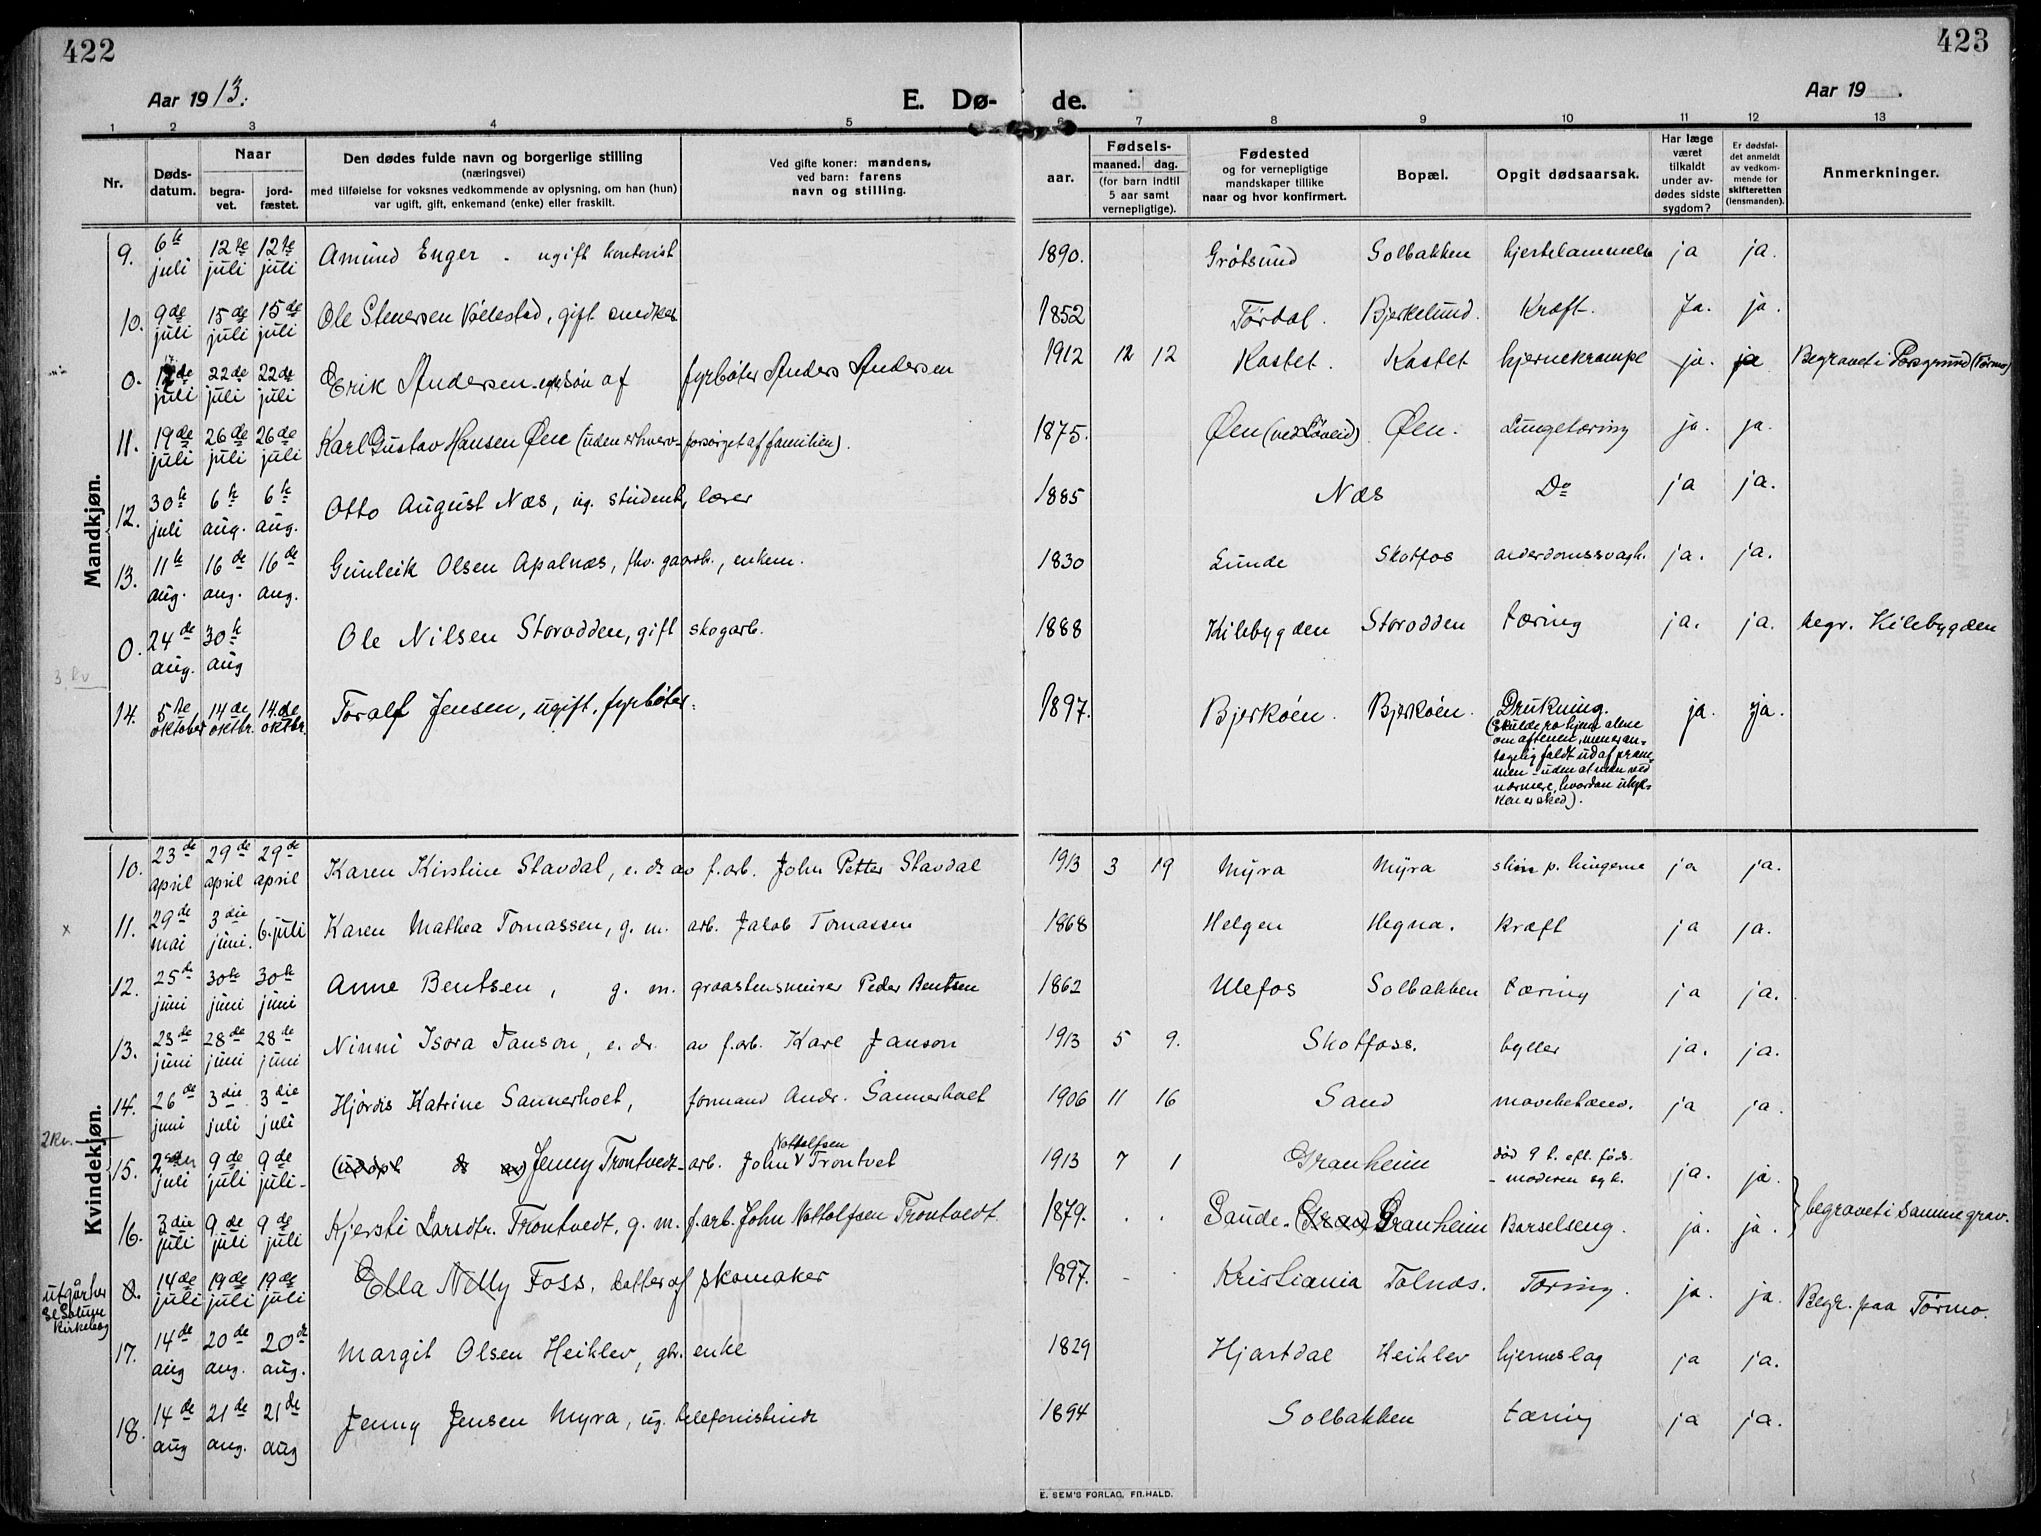 422
423
Aar 1913.
E. Dø-
de.
Aar 19 .
1 2 3 4 5 6 7 8 9 10 11 12 13
Nr.
Døds-
datum.
Naar
begra-
vet.
jord-
fæstet.
Den dødes fulde navn og borgerlige stilling
(næringsvei)
med tilføielse for voksnes vedkommende av oplysning, om han (hun)
var ugift, gift, enkemand (enke) eller fraskilt.
Ved gifte koner: mandens,
ved barn: farens
navn og stilling.
Fødsels-
aar.
maaned. dag.
(for barn indtil
5 aar samt
vernepligtige).
Fødested
og for vernepligtige
mandskaper tillike
naar og hvor konfirmert.
Bopæl.
Opgit dødsaarsak.
Har læge
været
tilkaldt
under av-
dødes sidste
sygdom?
Er dødsfal-
det anmeldt
av vedkom-
mende for
skifteretten
(lensmanden).
Anmerkninger.
Mandkjøn.
9. 6te juli 12te juli 12te juli Amund Enger - ugift kontorist 1890. Grøtsund Solbakken hjertelammelse ja ja.
10. 9de juli 15de juli 15de juli Ole Stenersen Vollestad, gift snedker 1852 Tørdal. Bjerkelund. Kræft. Ja. ja.
0. juli 22de juli 22de juli Erik Andersen søn af fyrbøter Anders Andersen 1912 12 12 Kastet. Kastet hjernekrampe ja. ja Begravet i Porsgrund (Tørmo)
11. 19de juli 26de juli 26de juli Karl Gustav Hansen Øen (uden erhverv- forsørget af familien). 1875. Øen (ved Løveid) Øen. Lungetæring ja. ja.
12. 30te juli 6te aug. 6te aug. Otto August Næs, ug. student, lærer 1885 Næs Do ja ja.
13. 11te aug. 16de aug. 16de aug. Gunleik Olsen Apalnæs, fhv. gaardbr., enkem. 1830 Lunde Skotfos alderdomssvagh. ja. ja.
0. 24de aug. 30te aug Ole Nilsen Storodden, gift skogarb. 1888 Kilebygden Storodden tæring ja. ja. begr. Kilebygden
14. 5te oktober 14de oktbr. 14.de oktbr. Toralf Jensen, ugift, fyrbøter. 1897. Bjerkøen. Bjerkøen. Drukning. ja. ja.
(Skulde ro hjem alene
om aftenen, men er an-
tagelig faldt ud af pram-
men - uden at man ved
nærmere, hvordan ulyk-
ken er sked).
3. kv
Kvindekjøn.
10. 23de april 29de april 29de april Karen Kirstine Stavdal, e. dr av f.arb. John Petter Stavdal 1913 3 19 Myra Myra slim p. lungerne ja ja.
x 11. 29de mai 3die juni. 6. juli Karen Mathea Tomassen, g. m. arb. Jakob Tomassen 1868 Helgen Hegna. kræft ja ja.
12. 25de juni 30te juni 30te juni Anne Bentsen, g. m. graastensmurer Peder Bentsen 1862 Ulefos Solbakken tæring ja ja.
13. 23de juni 28de juni 28de juni Ninni Isora Janson, e. dr. av f.arb. Karl Janson 1913 5 9. Skotfoss. byller ja. ja.
14. 26de juni 3die juli 3die juli Hjørdis Katrine Sannerholt, formand Andr. Sannerholt 1906 11 16 Sand mavebetænd. ja ja.
2 kv.
15. juli 9de juli 9de juli. (udøpt dr av) Jenny Trontvedt- arb. John Nottolfsen Trontvet 1913 7 1 Granheim død 9 t. eft. føds. - moderen syk. ja. ja.
16. 3die juli 9de juli 9de juli Kjersti Larsdtr. Trontvedt, g. m. f.arb. John Nottolfsen Trontvedt 1879. Saude. (Gran) Granheim Barselseng. ja. ja. begravet i samme grav.
utgår her
se Solum
kirkebog
0. 14de juli 19de juli 19de juli Ella Nelly Foss, datter af skomaker 1897. Kristiania Tolnæs. Tæring. ja. ja. Begr. paa Tørmo.
17. 14de aug 20de aug. 20de aug. Margit Olsen Heiklev, gbr. enke 1829 Hjartdal Heiklev hjerneslag ja ja.
18. 14de aug 21de aug. 21de aug Jenny Jensen Myra, ug. telefonistinde 1894 Solbakken tæring ja ja.
E. SEM'S FORLAG, FR.HALD.